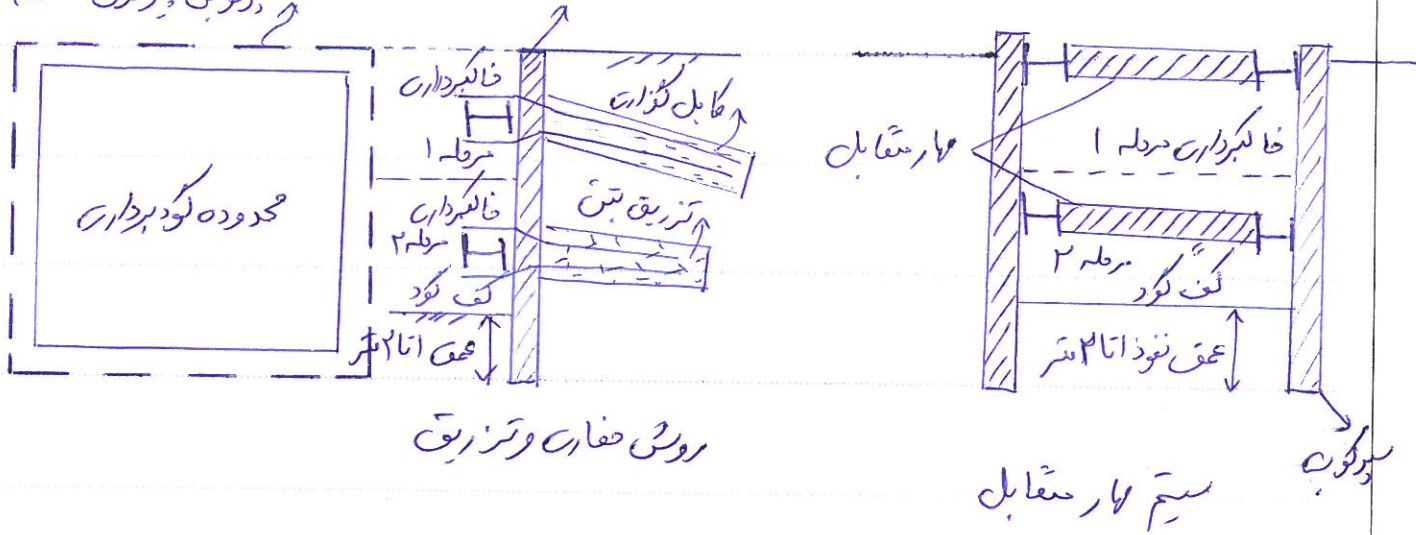 محدوده گودبرداری
خاکبرداری
مرحله ۱
خاکبرداری
مرحله ۲
کف گود
عمق ۱تا۲متر
کابل گذاری
تزریق بتن
روش حفاری و تزریق
مهار متقابل
خاکبرداری مرحله ۱
مرحله ۲
کف گود
عمق نفوذ ۱تا۲متر
سپرکوب
سیتم مهار متقابل